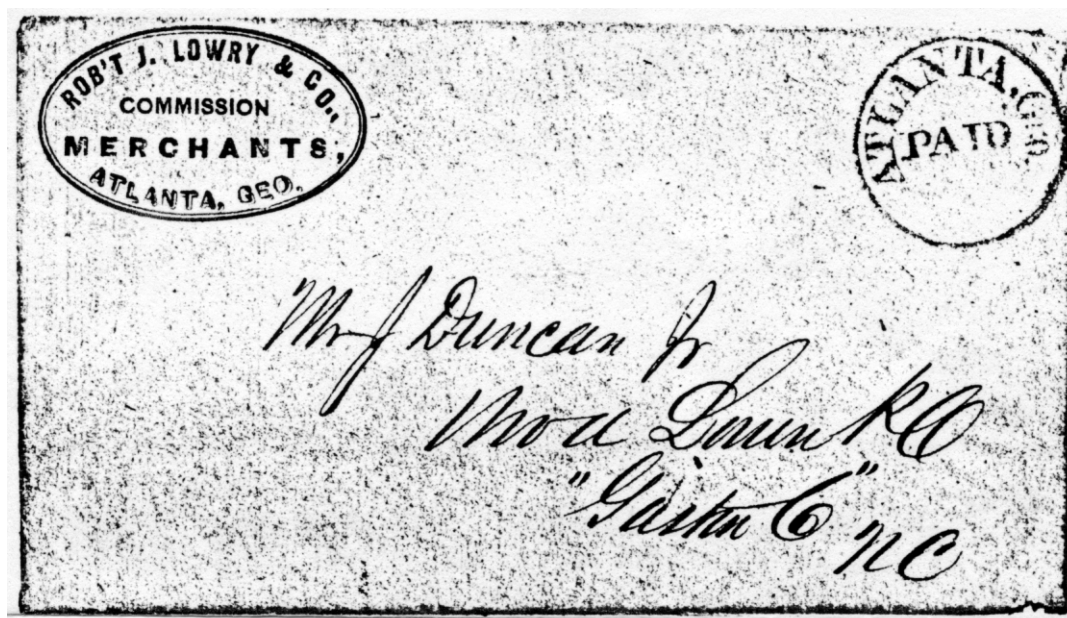 ROB'T J. LOWRY & CO.,
COMMISSION
MERCHANTS,
ATLANTA, GEO.
ATLANTA, Geo.
PAID
Mr J Duncan Jr
"Gaston Co"
NC